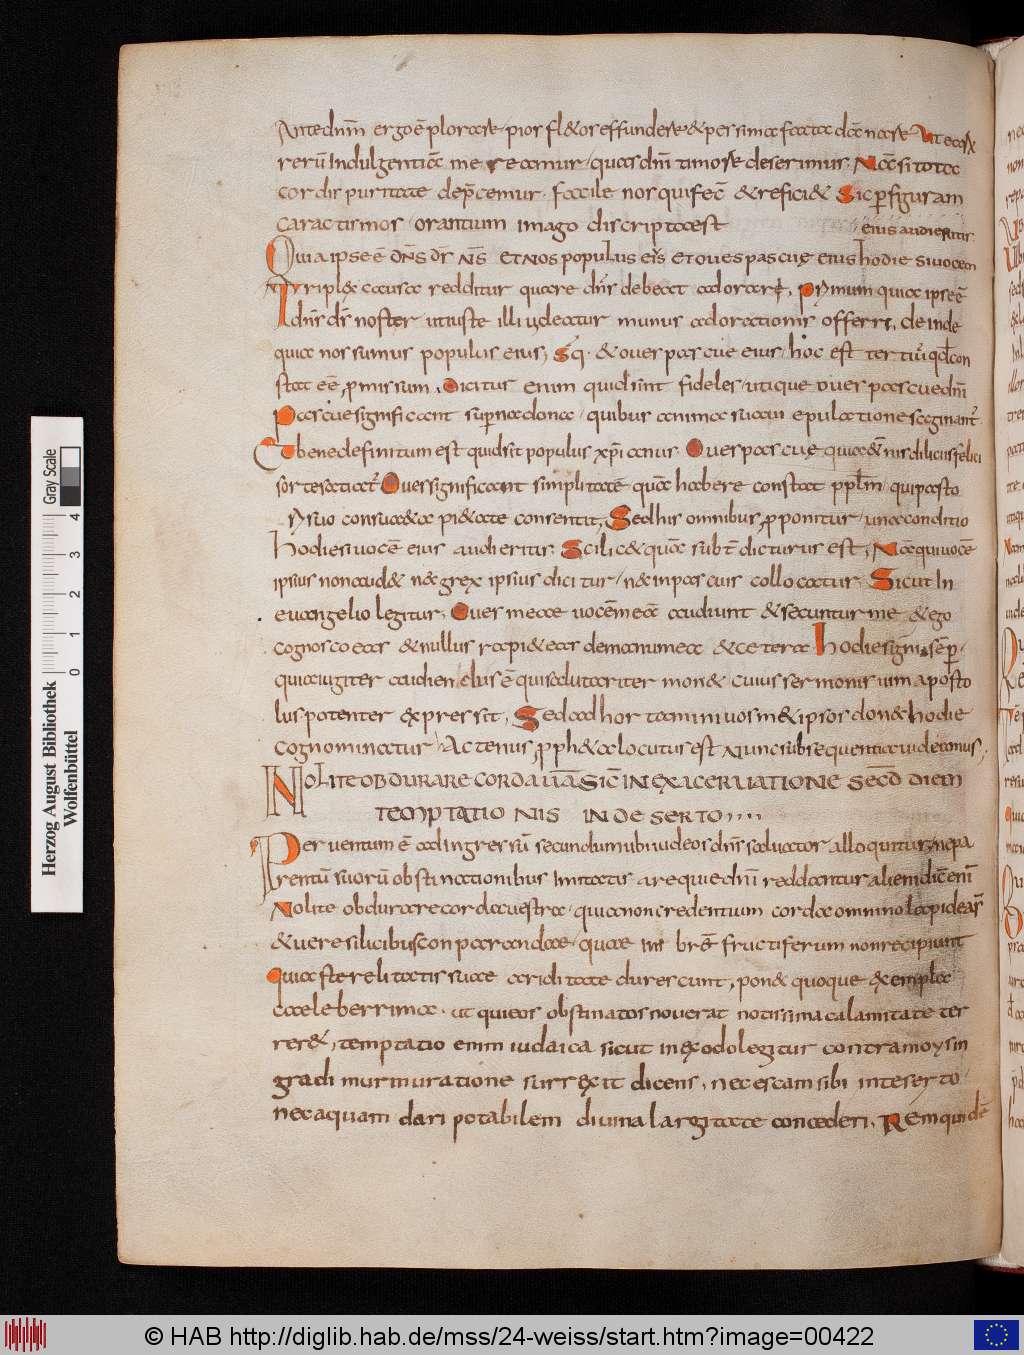 Ante dnm̄ ergo ē plorare, prior fl&us effundere &per sima facta dat nare. Ut ear
rerū Indulgentiā me reamur, quas dnī timore deserimus. Nā si tota
cordis puritate dep̄cemur. facile nos qui fec̄ & refici& Sic p figuram
caractismos, orantium imago discripta est
eius audieritis
Quia ipse ē dn̄s ds̄ ns̄ et nos populus eīs et oues pascuę eius hodie si uocem
Triplex causa redditur quare dn̄s debeat adorari. Prymum quia ipse ē
dn̄s ds̄ noster ut iuste illi uideatur munus adorationis offerri, deinde
quia nos sumus populus eius, Sq. & oues pascue eius, hoc est tertiū qd con
stat eē, p missum, Dicitur enim quid sint fideles, utique oues pascue dnī
Pascue significant supna dona, quibus anima suaui epulatione saginant
Et bene definitum est quid sit populus xp̄ianus Oues pascuę quia &
Oues significant simplitatē quā habere constat pplm̄, qui pasto
ry suo consueta pi&ate consentit, Sed his omnibus, pponitur, una conditio
hodie si uocē eius audieritis. Scilic& quā subt̄ dicturus est, Nā qui uocē
ipsius non audi& nec grex ipsius dicitur, nec in pascuis collocatur Sicut In
euangelio legitur, Oues meae uocē meā audiunt & secuntur me & ego
cognosco eas & nullus rapi& eas de manu mea & cetera hodie signi. sēp.
quia iugiter audiendus ē qui salutariter mon& cuius sermonis uim aposto
lus potenter expressit, Sed adhortamini uosm&ipsos donec hodie
cognominatur, Actenus, pph&a locutus est Nunc subsequentia uideamus,
Nolite obdurare corda ur̄a sic̄ in exaceruatione secd diem
temptationis in deserto,,,,
Peruentum ē ad ingressū secundum ubi iudeos dn̄s saluator alloquitur, ne pa
rentū suorū obstinationibus Imitatis a requie dnī reddantur alieni dic̄ enī
Nolite obdurare corda uestra, quia non credentium corda omnino lapidea sī
& uere silicibus conparanda, quae Im brē fructiferum non recipiunt
quia sterelitatis suae ariditate durescunt, pon& quoque exempla
caeleberrima. ut qui eos obstinatos nouerat notissima calamitate ter
rer&, temptatio enim iudaica sicut in exodo legitur contra moysin
gradi murmuratione surrexit dicens, nec escam sibi in deserto
nec aquam dari potabilem diuina largitate concederi, Rem quidē
Herzog August Bibliothek
Wolfenbüttel
0 1 2 3 4 Gray Scale
© HAB http://diglib.hab.de/mss/24-weiss/start.htm?image=00422